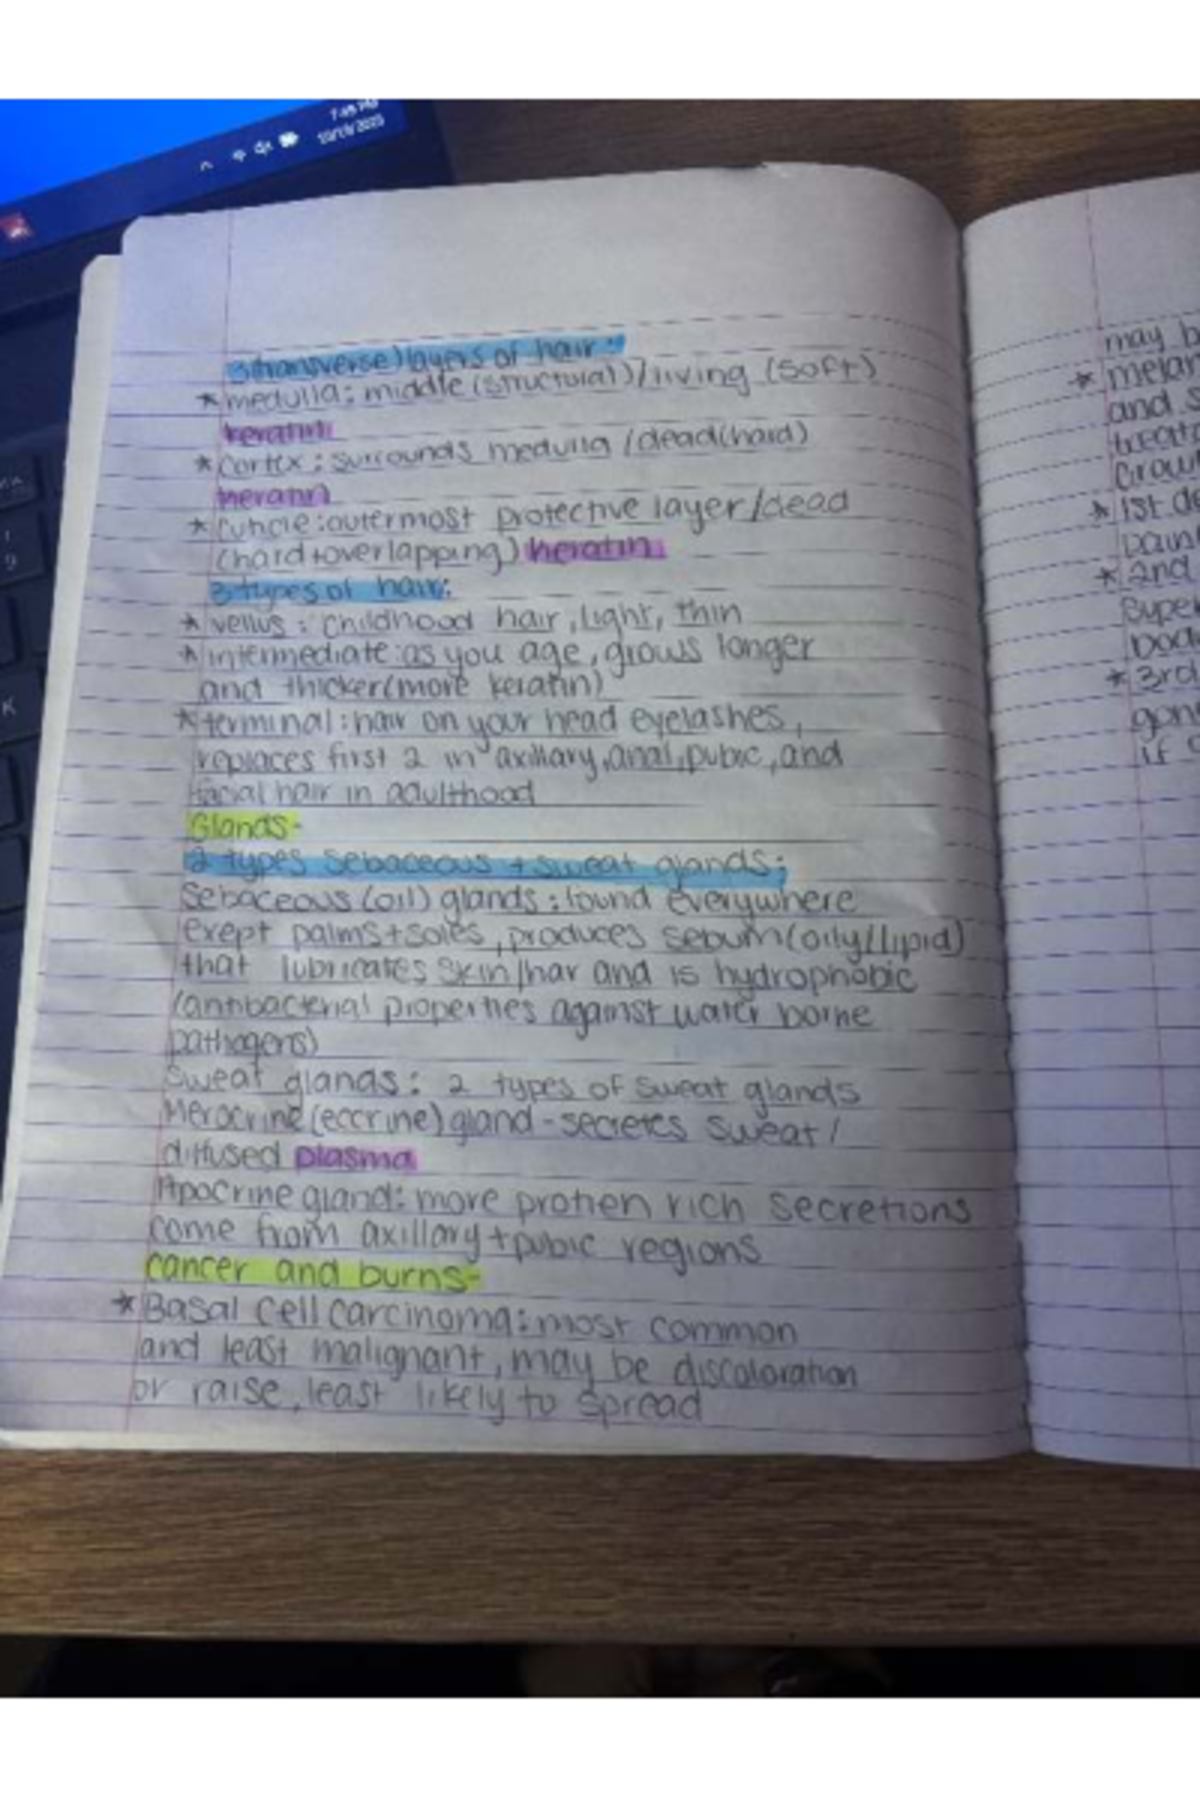 7:45 PM
3(transverse) layers of hair:
* medulla: middle (structural)/living (soft)
keratin
* cortex: surrounds medulla /dead(hard)
keratin
* cuticle: outermost protective layer/dead
(hard+overlapping) keratin
3 types of hair:
* vellus: childhood hair, light, thin
* intermediate: as you age, grows longer
and thicker(more keratin)
* terminal: hair on your head eyelashes,
replaces first 2 in axillary, anal, pubic, and
facial hair in adulthood
Glands-
2 types sebaceous + sweat glands:
Sebaceous (oil) glands: found everywhere
exept palms+soles, produces sebum(oily/lipid)
that lubricates skin/hair and is hydrophobic
(antibacterial properties against water borne
pathogens)
Sweat glands: 2 types of sweat glands
Merocrine (eccrine) gland - secretes sweat/
diffused plasma
Apocrine gland: more protien rich secretions
come from axillary + pubic regions
cancer and burns-
* Basal cell carcinoma: most common
and least malignant, may be discoloration
or raise, least likely to spread
may b
* melan
and s
treat
Grow
* 1st d
pain
* 2nd
super
bod
* 3rd
gon
if s